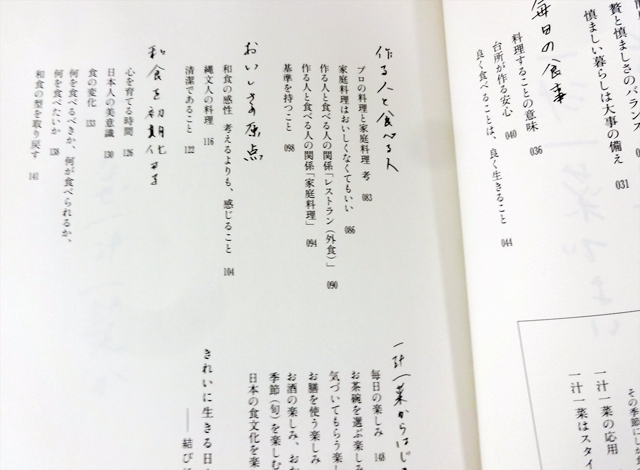 贅と慎ましさのバランス
慎ましい暮らしは大事の備え 031
毎日の食事
料理することの意味 036
台所が作る安心 040
良く食べることは、良く生きること 044
その季節にし
一汁一菜の応用
一汁一菜はスタイ
作る人と食べる人
プロの料理と家庭料理 考 083
家庭料理はおいしくなくてもいい 086
作る人と食べる人の関係「レストラン(外食)」 090
作る人と食べる人の関係「家庭料理」 094
基準を持つこと 098
おいしさの原点
和食の感性 考えるよりも、感じること 104
縄文人の料理 116
清潔であること 122
和食を初期化する
心を育てる時間 126
日本人の美意識 130
食の変化 133
何を食べるべきか、何が食べられるか、
何を食べたいか 138
和食の型を取り戻す 141
一汁一菜からはじ
毎日の楽しみ 148
お茶碗を選ぶ楽しみ
気づいてもらう楽し
お膳を使う楽しみ
お酒の楽しみ、お
季節(旬)を楽しむ
日本の食文化を楽
きれいに生きる日
――結び